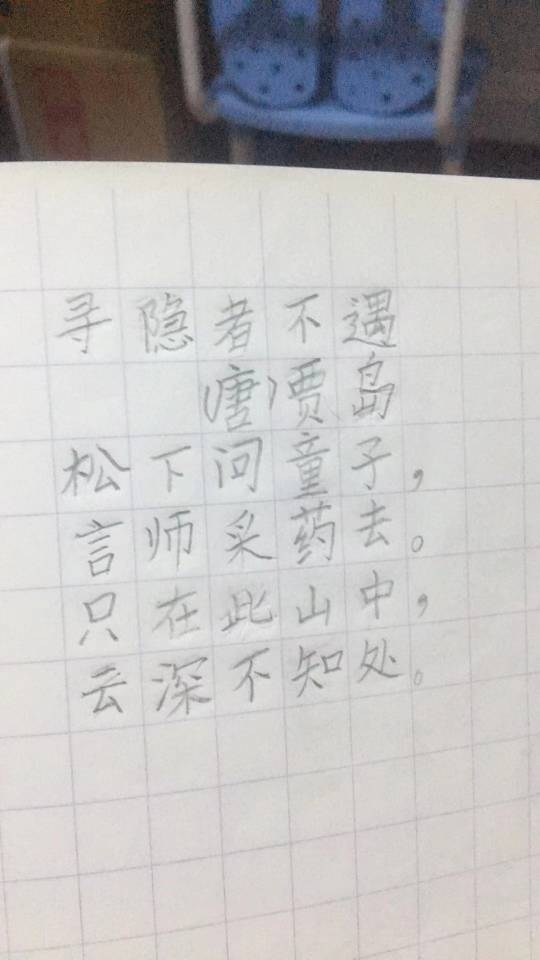 寻隐者不遇
(唐)贾岛
松下问童子，
言师采药去。
只在此山中，
云深不知处。